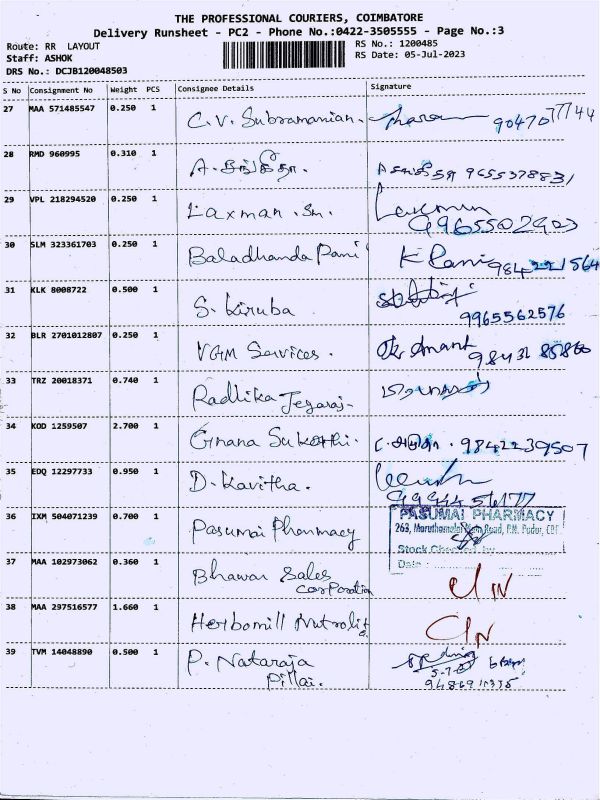 THE PROFESSIONAL COURIERS, COIMBATORE
Delivery Runsheet - PC2 - Phone No.:0422-3505555 - Page No.:3
Route: RR LAYOUT
RS No.: 1200485
Staff: ASHOK
RS Date: 05-Jul-2023
DRS No.: DCJB120048503
S No Consignment No Weight PCS Consignee Details Signature
27 MAA 571485547 0.250 1 C.V. Subramanian.
28 RMD 960995 0.310 1 9655378831
29 VPL 218294520 0.250 1 Laxman .Sn. Laxman
9965502903
30 SLM 323361703 0.250 1 Baladhanda Pani K Pani
31 KLK 8008722 0.500 1 S. Kiruba
9965562576
32 BLR 2701012807 0.250 1 VGM Services. Anant
33 TRZ 20018371 0.740 1 Radhika Jegaraj.
34 KOD 1259507 2.700 1 Gnana Sukothi. 9842239507
35 EDQ 12297733 0.950 1 D. Kavitha.
9994456177
36 IXM 504071239 0.700 1 Pasumai Pharmacy PASUMAI PHARMACY
Stock Checked by
Date :
37 MAA 102973062 0.360 1 Bhawar Sales
Corporation
38 MAA 297516577 1.660 1
39 TVM 14048890 0.500 1 P. Nataraja
Pillai.